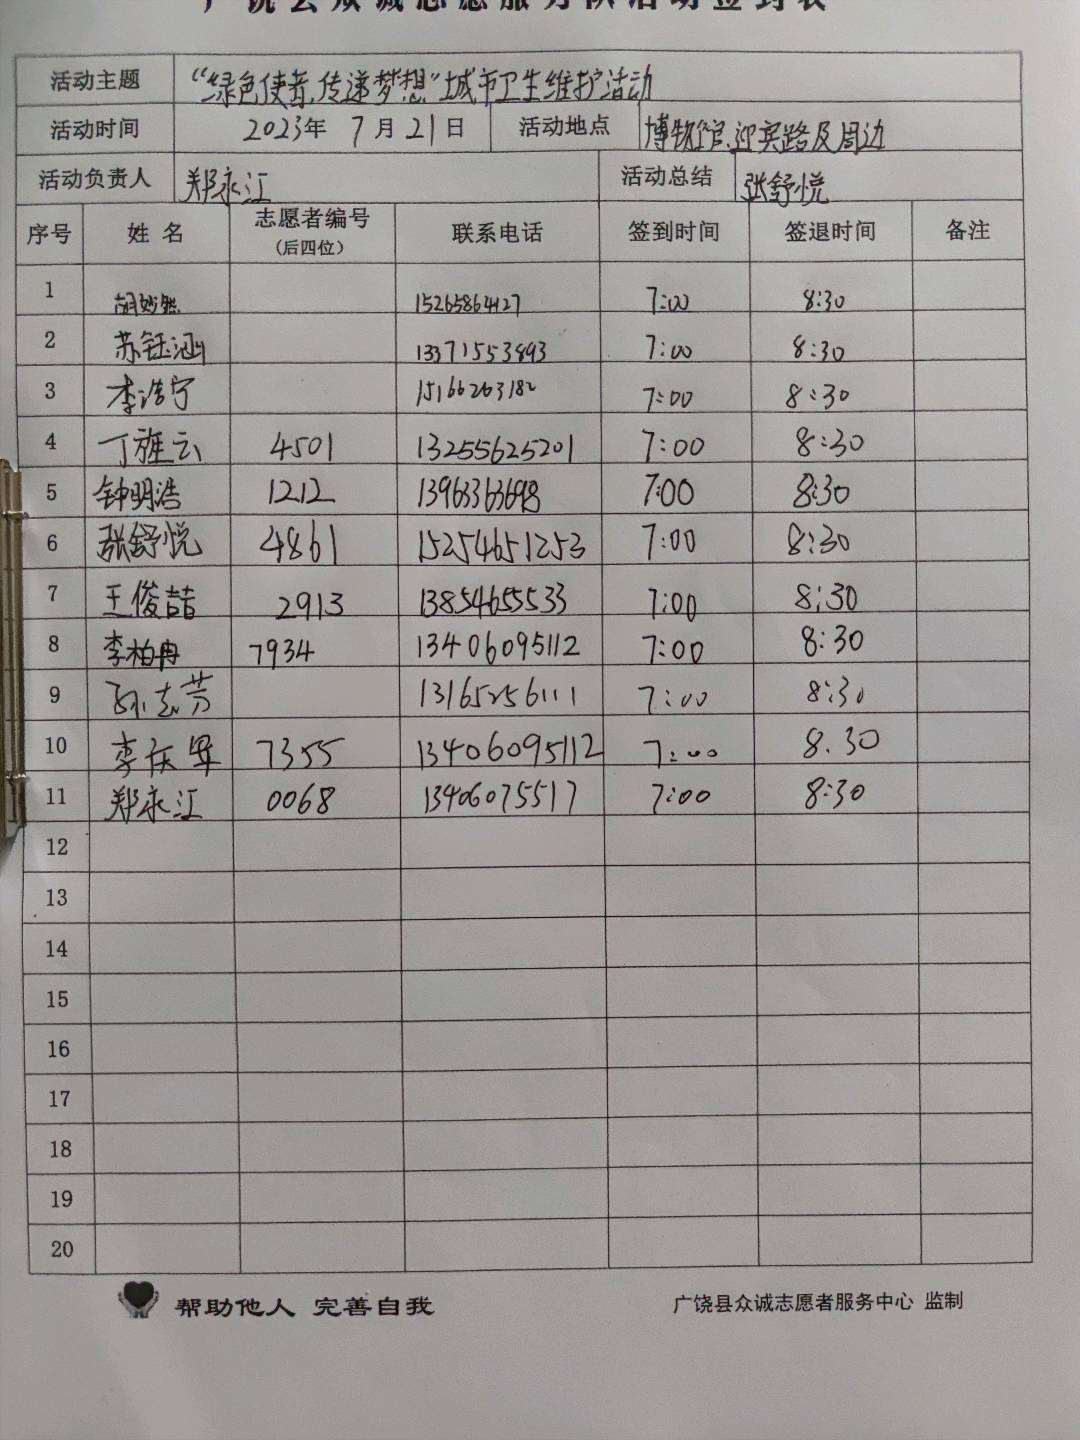 广饶县众诚志愿服务队活动签到表
活动主题 “绿色使者，传递梦想”城市卫生维护活动
活动时间 2023年 7月21日 活动地点 博物馆、迎宾路及周边
活动负责人 郑永江 活动总结 张舒悦
序号 姓名 志愿者编号（后四位） 联系电话 签到时间 签退时间 备注
1 胡妙然 15265864127 7:00 8:30
2 苏钰涵 13371553893 7:00 8:30
3 李浩宁 15166263182 7:00 8:30
4 丁雅云 4501 13255625201 7:00 8:30
5 钟明浩 1212 13963363698 7:00 8:30
6 张舒悦 4861 15254651253 7:00 8:30
7 王俊喆 2913 13854655533 7:00 8:30
8 李柏冉 7934 13406095112 7:00 8:30
9 孙志芳 13165256111 7:00 8:30
10 李庆军 7355 13406095112 7:00 8.30
11 郑永江 0068 13406075517 7:00 8:30
12
13
14
15
16
17
18
19
20
帮助他人 完善自我 广饶县众诚志愿者服务中心 监制